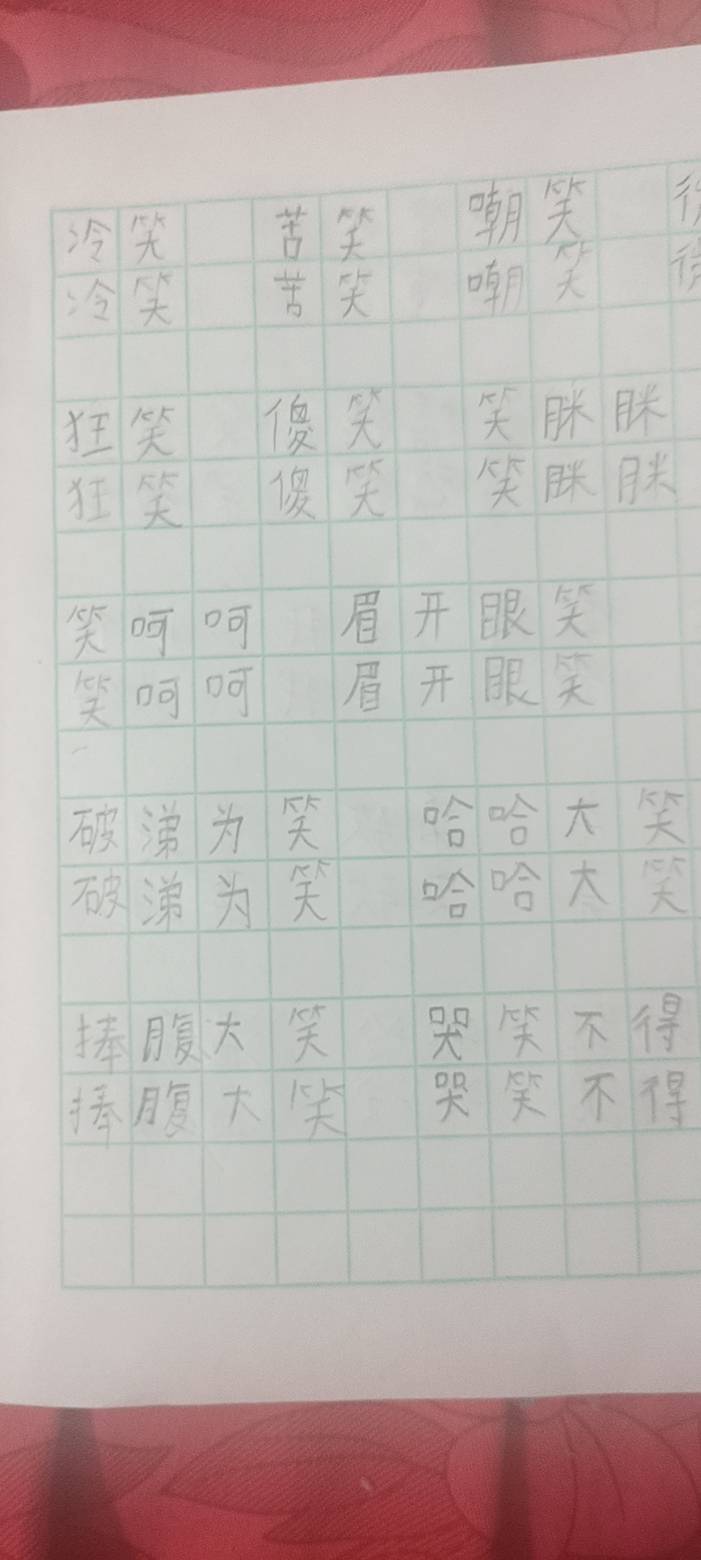 冷笑 苦笑 嘲笑
冷笑 苦笑 嘲笑
狂笑 傻笑 笑眯眯
狂笑 傻笑 笑眯眯
笑呵呵 眉开眼笑
笑呵呵 眉开眼笑
破涕为笑 哈哈大笑
破涕为笑 哈哈大笑
捧腹大笑 哭笑不得
捧腹大笑 哭笑不得